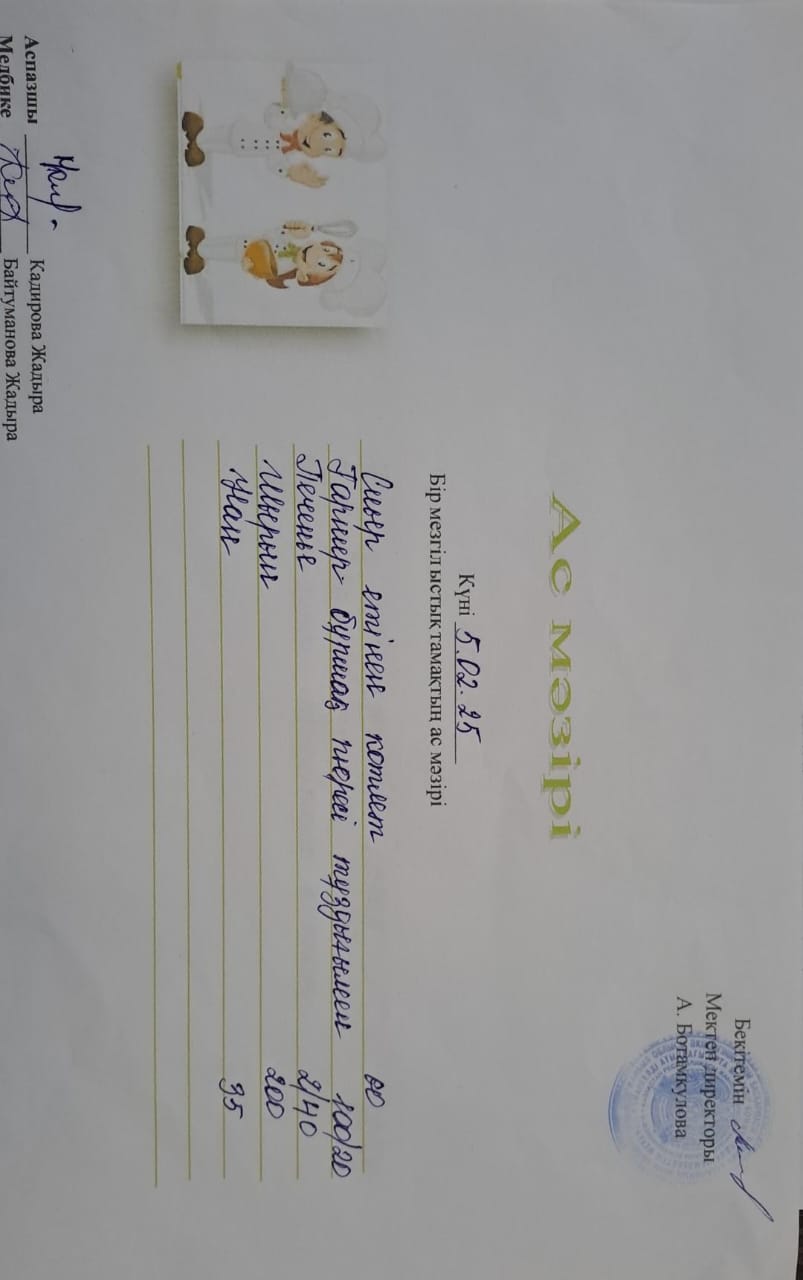 Бекітемін
Мектеп директоры
А. Ботамкулова
Ас мәзірі
Күні 5.02.25
Бір мезгіл ыстық тамақтың ас мәзірі
Сиыр етінен котлет
Гарнер бұршақ пюресі тұздығымен 100/20
Печенье 2/40
200
Нан 35
Аспазшы Кадирова Жадыра
Медбике Байтуманова Жадыра